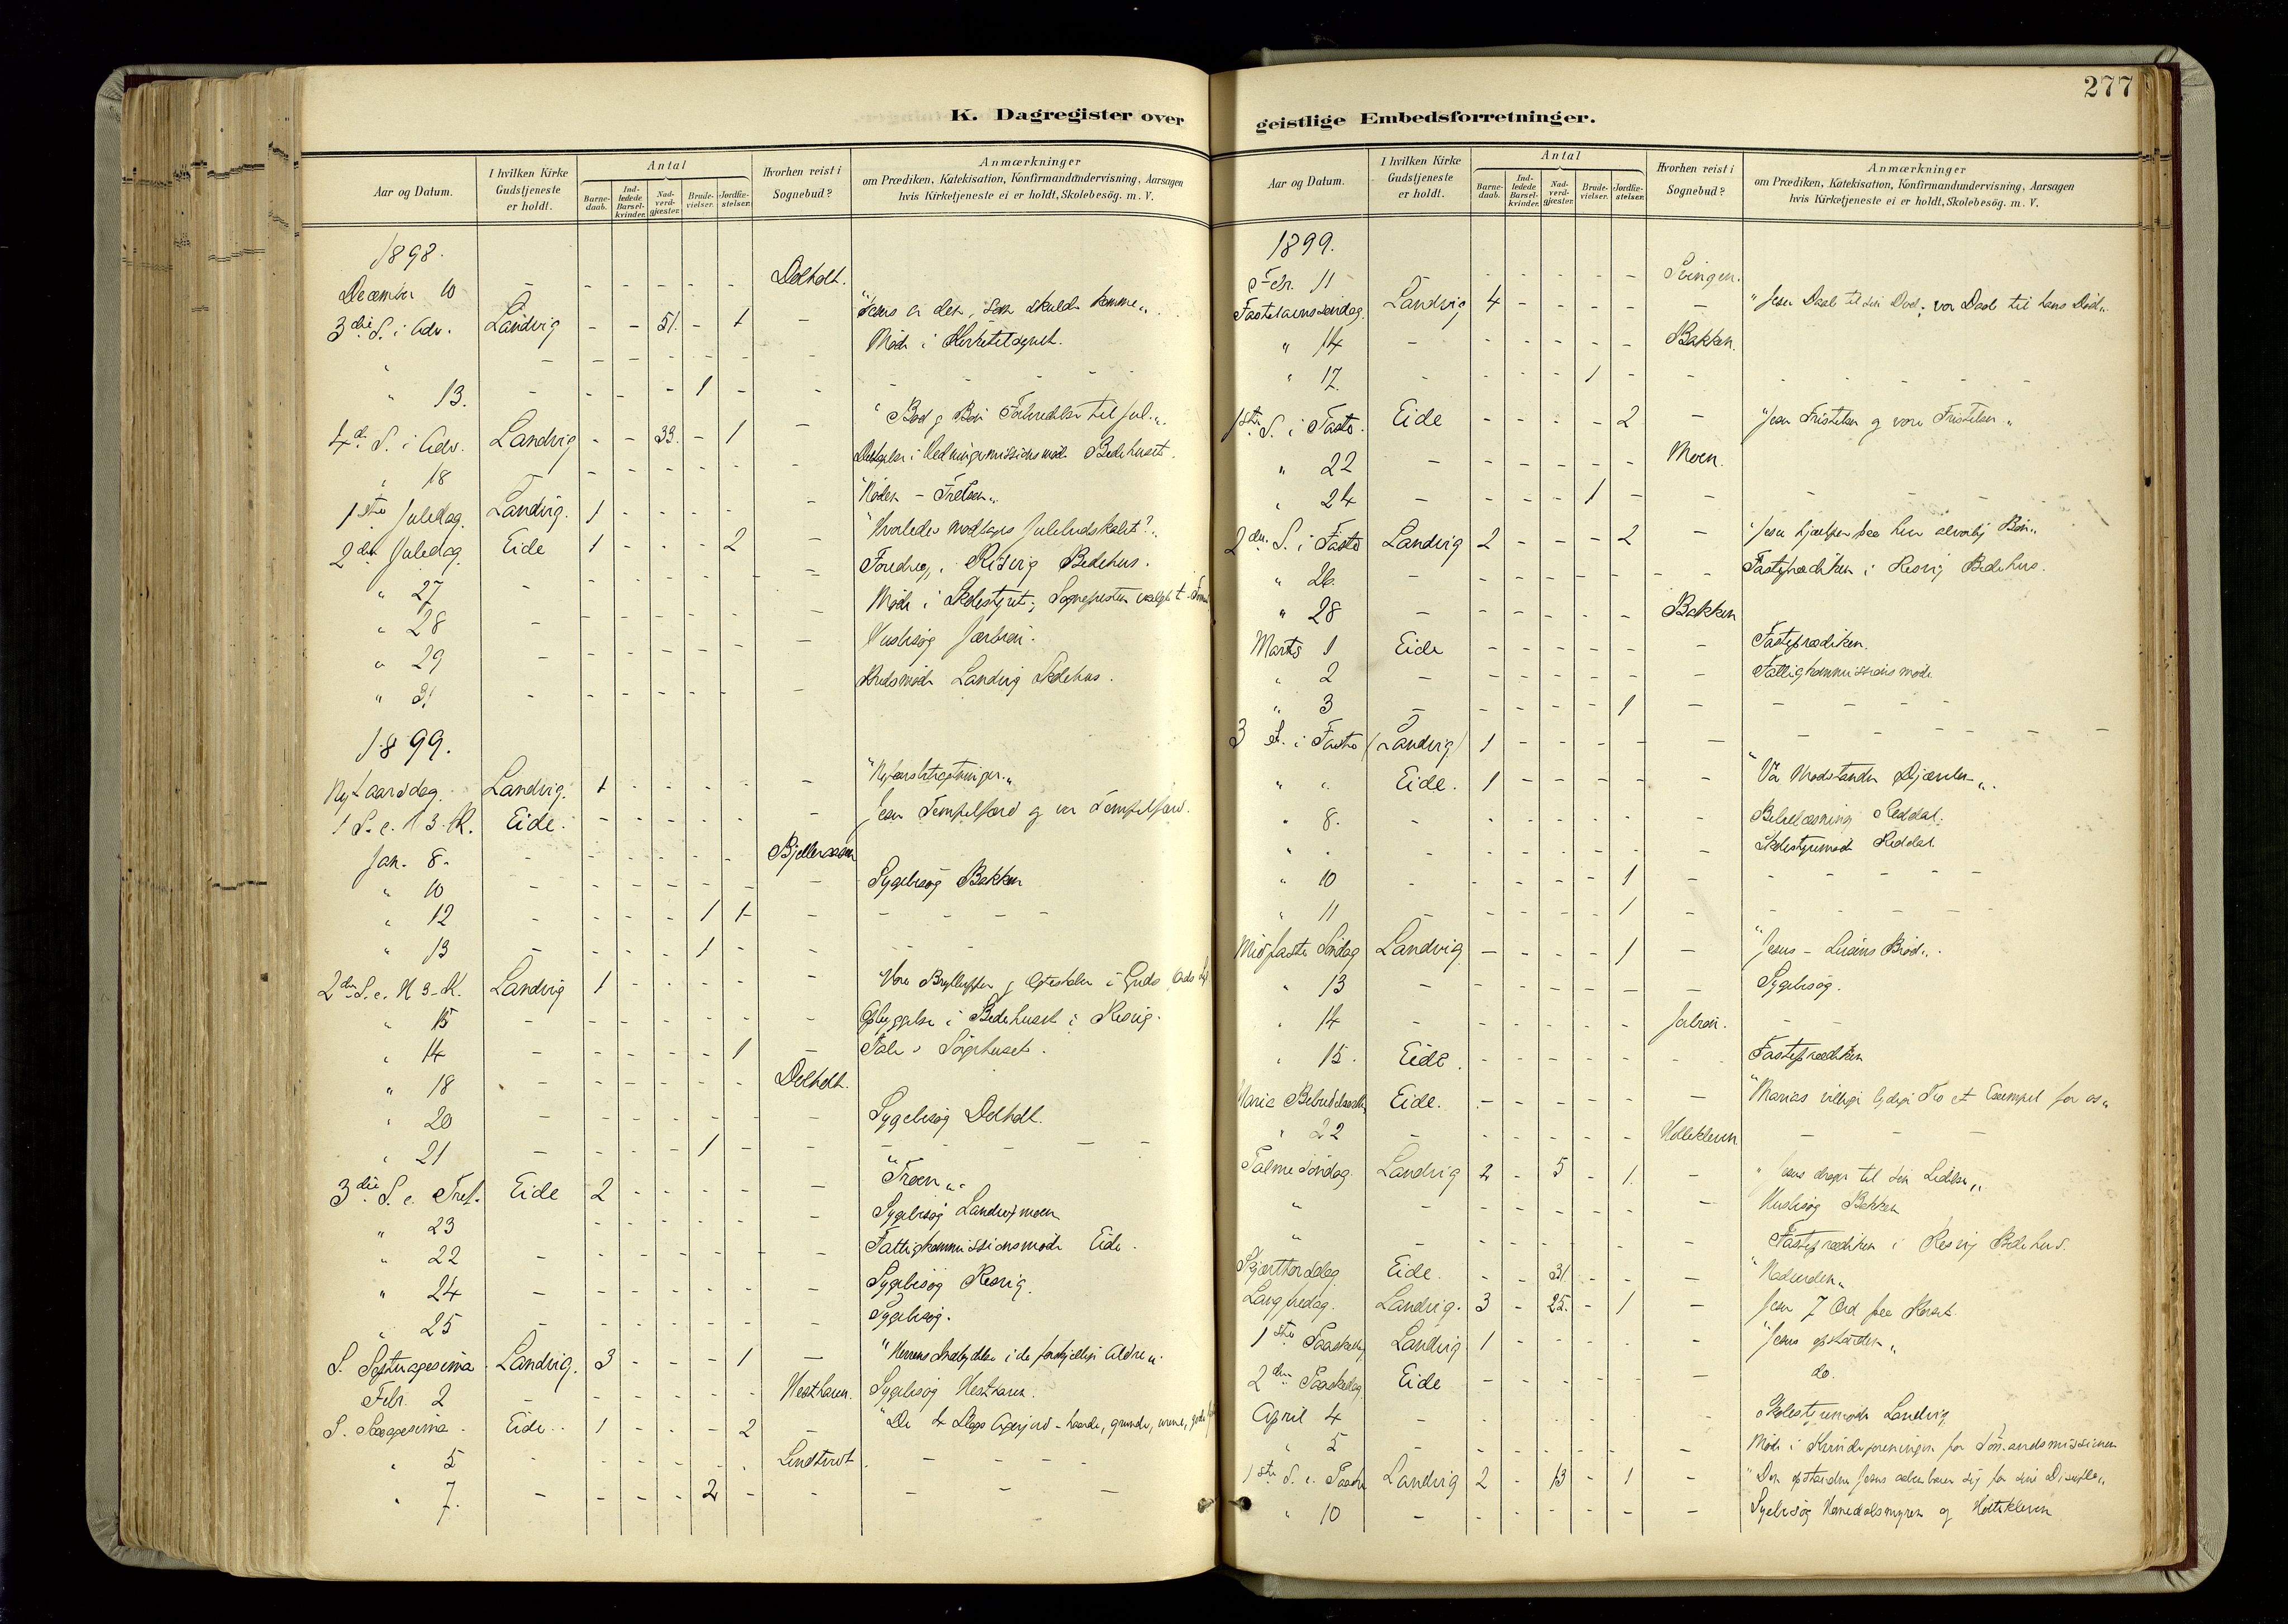 277
K. Dagregister over
Aar og Datum. I hvilken Kirke Gudstjeneste er holdt. Antal Barne-daab. Ind-ledede Barsel-kvinder. Nad-verd-gjæster. Brude-vielser. Jordfæ-stelser. Hvorhen reist i Sognebud? Anmærkninger om Prædiken, Katekisation, Konfirmandundervisning, Aarsagen hvis Kirketjeneste ei er holdt, Skolebesög. m. V.
1898.
December 10 - - - - - - Dolholt.
3die S. i Adv. Landvig - - 51. - 1 - "Jesus er den, som skulde komme".
" - - - - - - - Møde i Kirketilsynet.
" 13. - - - - 1 - - - - - -
4de S. i Adv. Landvig - - 33. - 1 "Bod og Bøn Forberedelse til Jul".
" 18 - - - - - - - Bedehuset.
1ste Juledag. Landvig. 1 - - - - - "Nøden - Frelsen".
2den Juledag. Eide 1 - - - 2 - "Hvorledes modtages Julebudskabet?"
" 27 - - - - - - - Foredrag i Resvig Bedehus.
" 28 - - - - - - - Møde i Skolestyret;
" 29 - - - - - - - Husbesøg
" 31 - - - - - - - Landvig Skolehus.
1899.
Nytaarsdag. Landvig. 1 - - - - - "Nytaarsbetragtninger"
1 S. e. H 3 K. Eide. - - - - - - Jesu Tempelfærd og vor Tempelfærd.
Jan. 8. - - - - - - Bjelleraasen
" 10 - - - - - - - Sygebesøg Bakken
" 12 - - - - 1 1 - - - - -
" 13 - - - - 1 - - - -
2den S. e. H 3 K. Landvig 1 - - - - - Vore Bryllupper og Ægteskaber i Guds Ords
" 15 - - - - - - - Opbyggelse i Bedehuset i Resvig.
" 14 - - - - - 1 - Tale i Sørgehuset.
" 18 - - - - - - Dolholt.
" 20 - - - - - - - Sygebesøg Dolholt.
" 21 - - - - 1 - - - - - -
3die S. e. Eide 2 - - - - - "Troen".
" 23 - - - - - - Sygebesøg Landvigmoen
" 22 - - - - - - - Fattigkommissionsmøde Eide.
" 24 - - - - - - - Sygebesøg Resvig.
" 25 - - - - - - - Sygebesøg.
S. Septuagesima Landvig. 3 - - - 1 - "Herrens Indbydelse i de forskjellige Aldre".
Febr. 2 - - - - - - Hesthaven. Sygebesøg Hesthaven.
S. Sexagesima. Eide. 1 - - - 2 - "De 4 Slags Agerjord - haarde, grunde, urene, gode
" 5 - - - - - - Lindtveit - - - -
" 7. - - - - 2 - - - - -
geistlige Embedsforretninger.
Aar og Datum. I hvilken Kirke Gudstjeneste er holdt. Antal Barne-daab. Ind-ledede Barsel-kvinder. Nad-verd-gjæster. Brude-vielser. Jordfæ-stelser. Hvorhen reist i Sognebud? Anmærkninger om Prædiken, Katekisation, Konfirmandundervisning, Aarsagen hvis Kirketjeneste ei er holdt, Skolebesög. m. V.
1899.
Febr. 11 - - - - - - Svingen.
Fastelavnssøndag. Landvig 4 - - - - - "Jesu Daab til sin Død; vor Daab til hans Død".
" 14 - - - - - - Bakken.
" 17. - - - - 1 - - - - - -
1ste S. i Faste. Eide - - - - 2 - "Jesu Fristelser og vore Fristelser"
" 22 - - - - - - Moen.
" 24 - - - - 1 - - - - -
2den S. i Faste Landvig 2 - - - 2 - "Jesu hjælper paa hver alvorlig Bøn".
" 26. - - - - - - - Fasteprædiken i Resvig Bedehus.
" 28 - - - - - - Bakken
Marts 1 Eide - - - - - - Fasteprædiken.
" 2 - - - - - - - Fattigkommissionsmøde
" 3 - - - - - 1 - - - - -
3 S. i Faste (Landvig) 1 - - - - - - - - - -
" " Eide. 1 - - - - - "Vor Modstander Djævelen".
" 8. - - - - - - - Bibellæsning Reddal.
" " - - - - - - - Skolestyremøde Reddal
" 10 - - - - - 1 - - - - - -
" 11 - - - - - 1 - - - - -
Midfaste Søndag Landvig - - - - 1 - "Jesus - Livsens Brød".
" 13 - - - - - - - Sygebesøg.
" 14 - - - - - - - -
" 15. Eide. - - - - - - Fasteprædiken
Mariæ Bebudelsesdag Eide. - - - - - - "Marias villige lydige Tro et Exempel for os"
" 22 - - - - - - Holtekleven - - -
Palmesøndag. Landvig 2 - 5 - 1. - "Jesus drager til sin Lidelse"
" - - - - - - - Husbesøg Bakken
" - - - - - - - Fasteprædiken i Resvig Bedehus.
Skjærthorsdag Eide. - - 31. - - - "Nadverden"
Langfredag. Landvig. 3 - 25. - 1 - Jesu 7 Ord paa Korset.
1ste Paaskedag Landvig 1 - - - - - "Jesus opstanden"
2den Paaskedag Eide - - - - - - do.
April 4 - - - - - - - Skolestyremøde Landvig
" 5 - - - - - - - Møde i Kvindeforeningen for Sømandsmissionen
1ste S. e. Paaske Landvig 2 - 13 - 1 - "Den opstandne Jesus aabenbarer sig for sine Disciple"
" 10 - - - - - - - Sygebesøg og Holtekleven